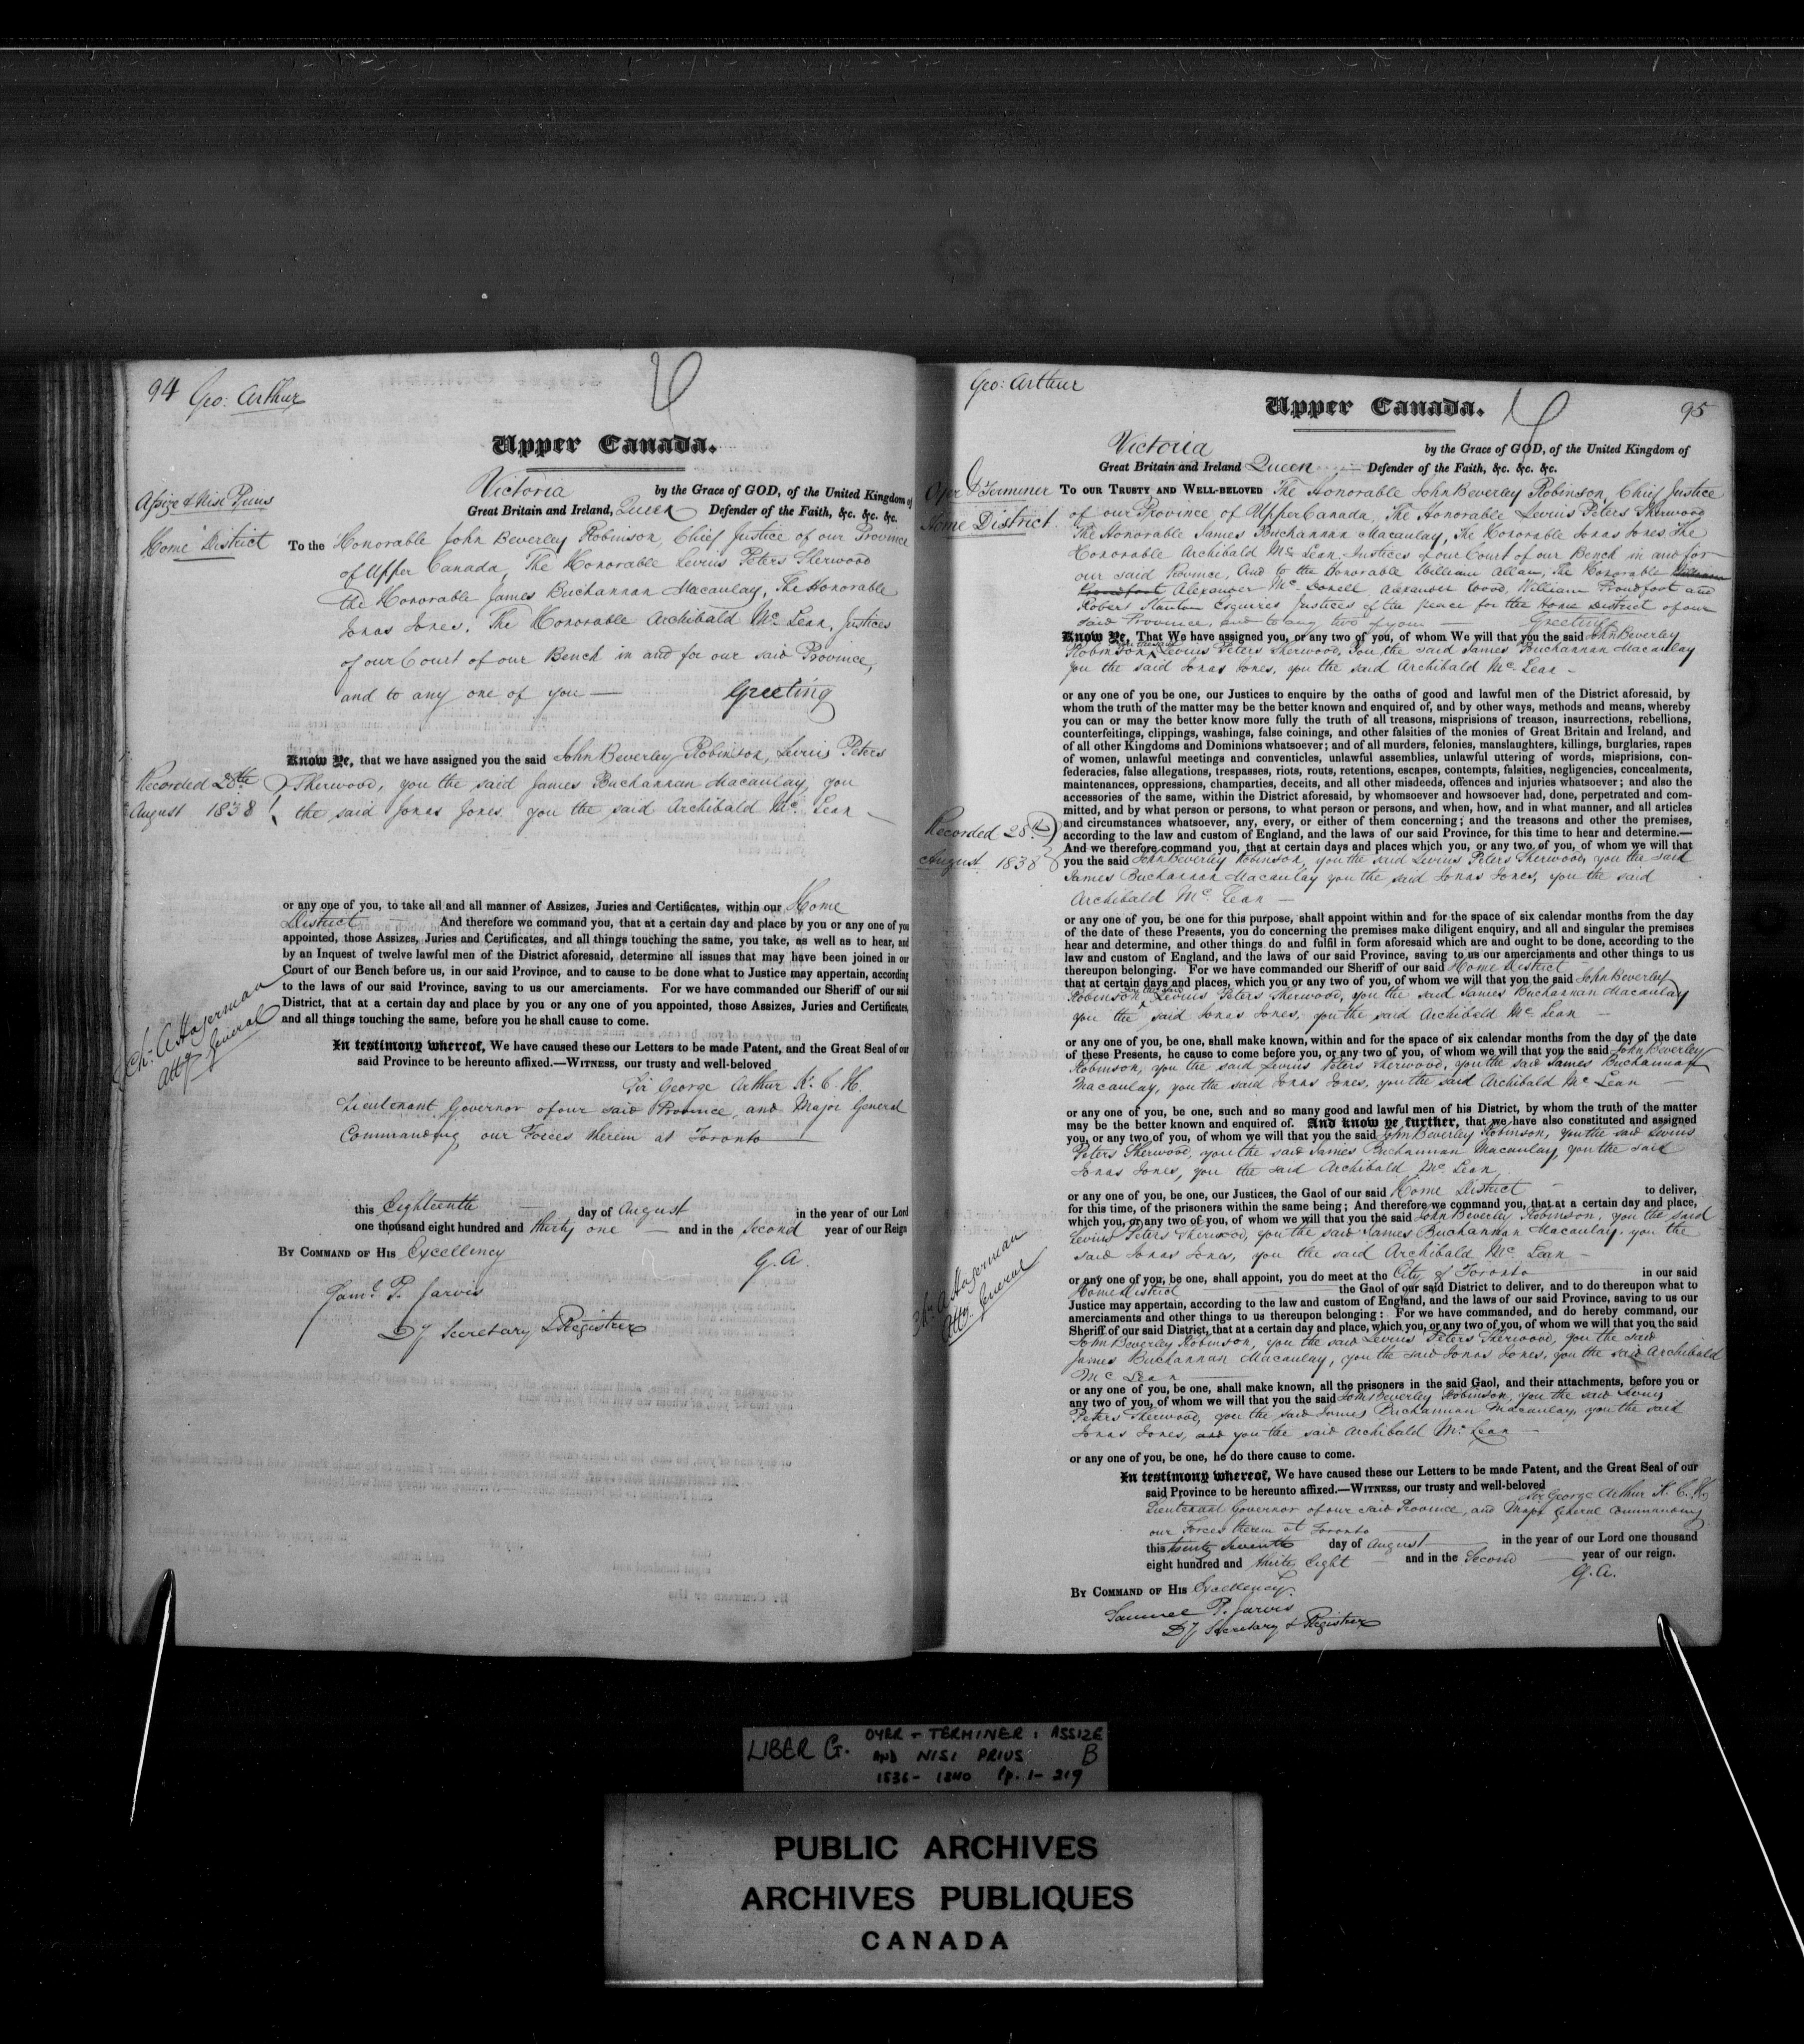 94 Geo: Arthur
Upper Canada.
Assize & Nisi Prius
Home District
Victoria by the Grace of GOD, of the United Kingdom of
Great Britain and Ireland, Queen Defender of the Faith, &c. &c. &c.
To the Honorable John Beverley Robinson, Chief Justice of our Province
of Upper Canada, The Honorable Levius Peters Sherwood
the Honorable James Buchannan Macaulay, The Honorable
Jonas Jones, The Honorable Archibald Mc Lean, Justices
of our Court of our Bench in and for our said Province,
and to any one of you — Greeting
Recorded 28th
August 1838
Know Ye, that we have assigned you the said John Beverley Robinson, Levius Peters
Sherwood, you the said James Buchannan Macaulay, you
the said Jonas Jones, you the said Archibald Mc Lean —
or any one of you, to take all and all manner of Assizes, Juries and Certificates, within our Home
District — And therefore we command you, that at a certain day and place by you or any one of you
appointed, those Assizes, Juries and Certificates, and all things touching the same, you take, as well as to hear, and
by an Inquest of twelve lawful men of the District aforesaid, determine all issues that may have been joined in our
Court of our Bench before us, in our said Province, and to cause to be done what to Justice may appertain, according
to the laws of our said Province, saving to us our amerciaments. For we have commanded our Sheriff of our said
District, that at a certain day and place by you or any one of you appointed, those Assizes, Juries and Certificates,
and all things touching the same, before you he shall cause to come.
Ch: A Hagerman
Atty General
In testimony whereof, We have caused these our Letters to be made Patent, and the Great Seal of our
said Province to be hereunto affixed.—WITNESS, our trusty and well-beloved
Sir George Arthur K. C. H.
Lieutenant Governor of our said Province, and Major General
Commanding our Forces therein at Toronto —
this Eighteenth — day of August in the year of our Lord
one thousand eight hundred and thirty one — and in the Second year of our Reign
BY COMMAND OF HIS Excellency
G. A.
Saml. P. Jarvis
Dy Secretary & Registrer
Geo: Arthur
Upper Canada.
95
Victoria by the Grace of GOD, of the United Kingdom of
Great Britain and Ireland Queen — Defender of the Faith, &c. &c. &c.
Oyer & Terminer
Home District
TO OUR TRUSTY AND WELL-BELOVED The Honorable John Beverley Robinson, Chief Justice
of our Province of Upper Canada, The Honorable Levius Peters Sherwood
The Honorable James Buchannan Macaulay, The Honorable Jonas Jones The
Honorable Archibald Mc Lean, Justices of our Court of our Bench in and for
our said Province, And to the Honorable William Allan, The Honorable William
Proudfoot Alexander Mc Donell, Alexander Wood, William Proudfoot and
Robert Stanton Esquires Justices of the peace for the Home District of our
said Province, and to any two of you — Greeting
Know Ye, That We have assigned you, or any two of you, of whom We will that you the said John Beverley
Robinson, you the said Levius Peters Sherwood, You the said James Buchannan Macaulay
you the said Jonas Jones, you the said Archibald Mc Lean —
or any one of you be one, our Justices to enquire by the oaths of good and lawful men of the District aforesaid, by
whom the truth of the matter may be the better known and enquired of, and by other ways, methods and means, whereby
you can or may the better know more fully the truth of all treasons, misprisions of treason, insurrections, rebellions,
counterfeitings, clippings, washings, false coinings, and other falsities of the monies of Great Britain and Ireland, and
of all other Kingdoms and Dominions whatsoever; and of all murders, felonies, manslaughters, killings, burglaries, rapes
of women, unlawful meetings and conventicles, unlawful assemblies, unlawful uttering of words, misprisions, con-
federacies, false allegations, trespasses, riots, routs, retentions, escapes, contempts, falsities, negligencies, concealments,
maintenances, oppressions, champarties, deceits, and all other misdeeds, offences and injuries whatsoever; and also the
accessories of the same, within the District aforesaid, by whomsoever and howsoever had, done, perpetrated and com-
mitted, and by what person or persons, to what person or persons, and when, how, and in what manner, and all articles
and circumstances whatsoever, any, every, or either of them concerning; and the treasons and other the premises,
according to the law and custom of England, and the laws of our said Province, for this time to hear and determine.—
Recorded 28th
August 1838
And we therefore command you, that at certain days and places which you, or any two of you, of whom we will that
you the said John Beverley Robinson, you the said Levius Peters Sherwood, you the said
James Buchannan Macaulay you the said Jonas Jones, you the said
Archibald Mc Lean —
or any one of you, be one for this purpose, shall appoint within and for the space of six calendar months from the day
of the date of these Presents, you do concerning the premises make diligent enquiry, and all and singular the premises
hear and determine, and other things do and fulfil in form aforesaid which are and ought to be done, according to the
law and custom of England, and the laws of our said Province, saving to us our amerciaments and other things to us
thereupon belonging. For we have commanded our Sheriff of our said Home District
that at certain days and places, which you or any two of you, of whom we will that you the said John Beverley
Robinson, you the said Levius Peters Sherwood, you the said James Buchannan Macaulay
you the said Jonas Jones, you the said Archibald Mc Lean —
or any one of you, be one, shall make known, within and for the space of six calendar months from the day of the date
of these Presents, he cause to come before you, or any two of you, of whom we will that you the said John Beverley
Robinson, you the said Levius Peters Sherwood, you the said James Buchannan
Macaulay, you the said Jonas Jones, you the said Archibald Mc Lean —
or any one of you, be one, such and so many good and lawful men of his District, by whom the truth of the matter
may be the better known and enquired of. And know ye further, that we have also constituted and assigned
you, or any two of you, of whom we will that you the said John Beverley Robinson, you the said Levius
Peters Sherwood, you the said James Buchannan Macaulay, you the said
Jonas Jones, you the said Archibald Mc Lean,
or any one of you, be one, our Justices, the Gaol of our said Home District — to deliver,
for this time, of the prisoners within the same being; And therefore we command you, that at a certain day and place,
which you, or any two of you, of whom we will that you the said John Beverley Robinson, you the said
Levius Peters Sherwood, you the said James Buchannan Macaulay, you the
said Jonas Jones, you the said Archibald Mc Lean —
or any one of you, be one, shall appoint, you do meet at the City of Toronto — in our said
Home District — the Gaol of our said District to deliver, and to do thereupon what to
Justice may appertain, according to the law and custom of England, and the laws of our said Province, saving to us our
amerciaments and other things to us thereupon belonging: For we have commanded, and do hereby command, our
Sheriff of our said District, that at a certain day and place, which you, or any two of you, of whom we will that you the said
John Beverley Robinson, you the said Levius Peters Sherwood, you the said
James Buchannan Macaulay, you the said Jonas Jones, you the said Archibald
Mc Lean —
Ch: A Hagerman
Atty. General
or any one of you, be one, shall make known, all the prisoners in the said Gaol, and their attachments, before you or
any two of you, of whom we will that you the said John Beverley Robinson, you the said Levius
Peters Sherwood, you the said James Buchannan Macaulay, you the said
Jonas Jones, and you the said Archibald Mc Lean —
or any one of you, be one, he do there cause to come.
In testimony whereof, We have caused these our Letters to be made Patent, and the Great Seal of our
said Province to be hereunto affixed.—WITNESS, our trusty and well-beloved Sir George Arthur K. C. H.
Lieutenant Governor of our said Province, and Major General Commanding
our Forces therein at Toronto —
this twenty seventh day of August — in the year of our Lord one thousand
eight hundred and thirty Eight — and in the Second — year of our reign.
G. A.
BY COMMAND OF HIS Excellency.
Samuel P. Jarvis
Dy Secretary & Registrer
LIBER G. OYER + TERMINER: ASSIZE
AND NISI PRIUS B
1836-1840 (p. 1-219
PUBLIC ARCHIVES
ARCHIVES PUBLIQUES
CANADA